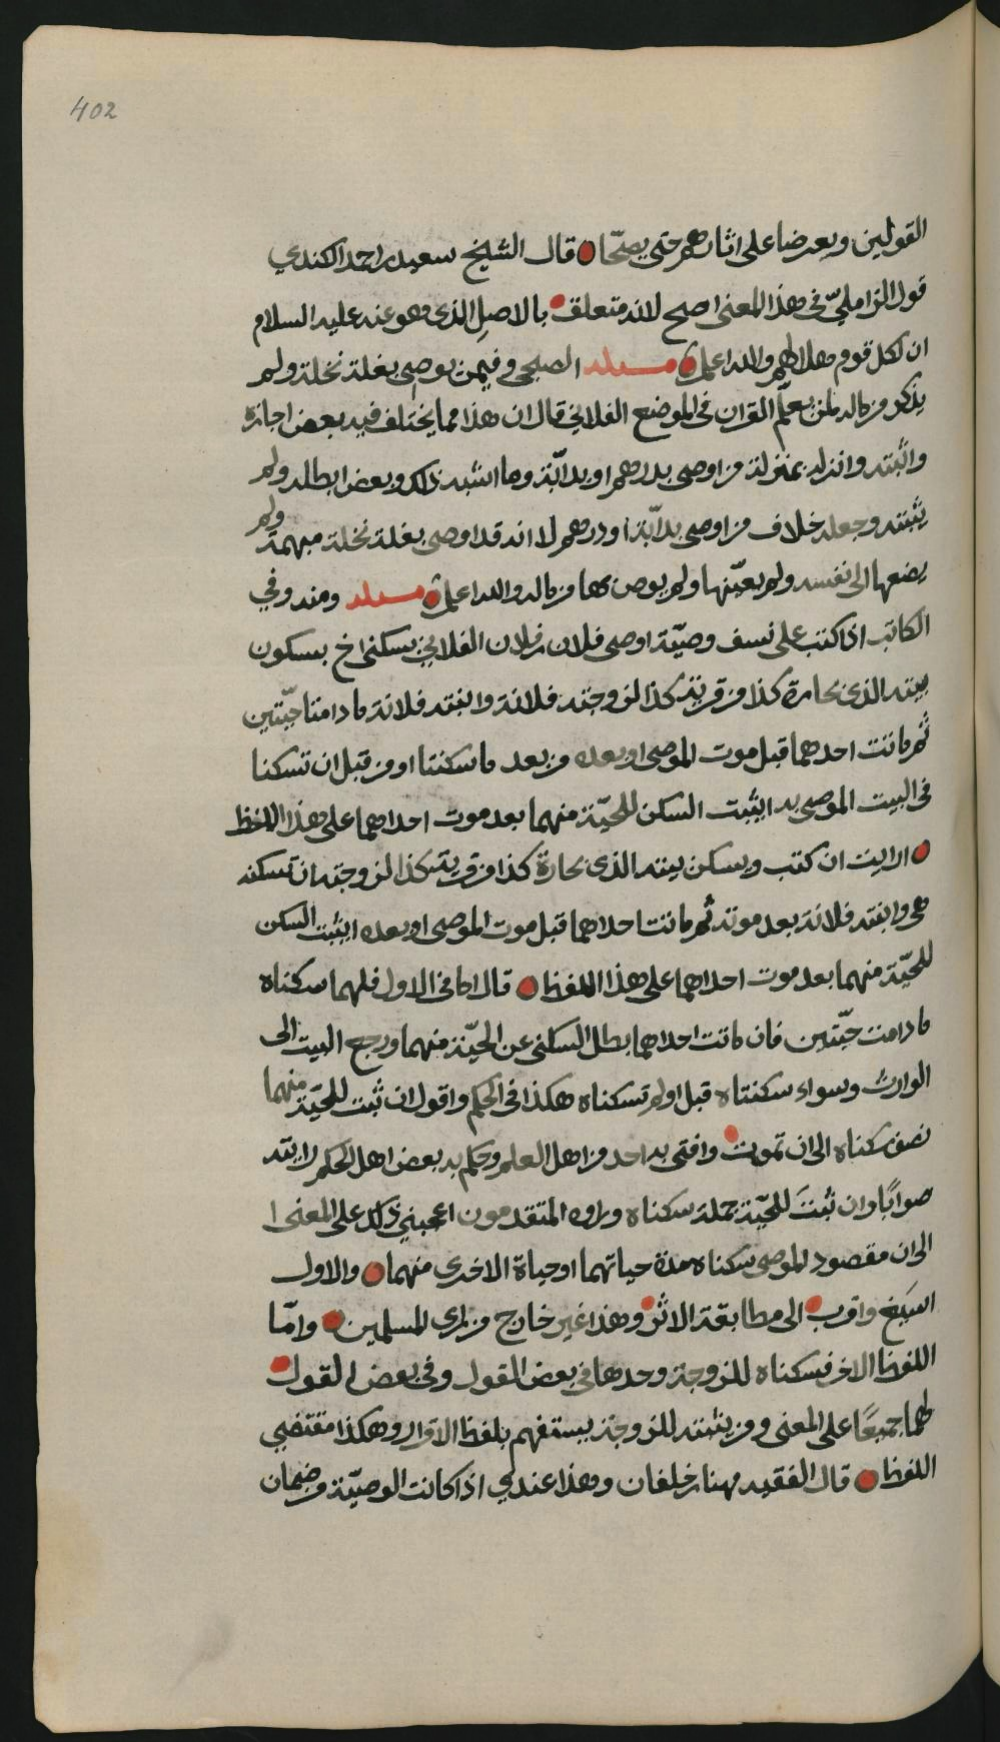 402
القولين ويعرضا على اثارهم حتى يصحّا قال الشيخ سعيد بن احمد الكندي
قول الزامليّ في هذا المعنى اصح لانه متعلق بالاصل الذي هو عنه عليه السلام
ان لكل قوم هلالهم والله اعلم مسئلة الصبحي وفيمن يوصي بغلة نخلة ولم
يذكر من ماله لمن يعلّم القران في الموضع الفلاني قال ان هذا مما يختلف فيه بعض اجازه
واثبته وانزله بمنزلة من اوصى بدراهم او بدابّة وما اشبه ذلك وبعض ابطله ولم
يثبته وجعله خلاف من اوصى بدابّة او دراهم لانه قد اوصى بغلة نخلة مبهمة ولم
يضعها الى نفسه ولم يعيّنها ولم يوص بها من ماله والله اعلم مسئلة ومنه وفي
الكاتب اذا كتب على نسف وصيّة اوصى فلان بن فلان الفلاني بسكنى اخ بسكون
بيته الذي بحارة كذا من قرية كذا لزوجته فلانة وابنته فلانة ما دامتا حيّتين
ثم ماتت احدهما قبل موت الموصي او بعده من بعد ما سكنتا او من قبل ان تسكنا
في البيت الموصى به ايثبت السكن للحيّة منهما بعد موت احداهما على هذا اللفظ
ارايت ان كتب ويسكن بيته الذي بحارة كذا من قرية كذا لزوجته ان تسكنه
هي وابنته فلانة بعد موته ثم ماتت احداهما قبل موت الموصي او بعده ايثبت السكن
للحيّة منهما بعد موت احداهما على هذا اللفظ قال اما في الاول فلهما سكناه
ما دامت حيّتين فان ماتت احداهما بطل السكنى عن الحيّة منهما ورجع البيت الى
الوارث وسواء سكنتاه قبل او لم تسكناه هكذا في الحكم واقول ان ثبت للحيّة منهما
نصف سكناه الى ان تموت وافتى به احد من اهل العلم وحكم به بعض اهل الحكم رايته
صوابًا وان ثبتَ للحيّة جملة سكناه وراه المتقدمون اعجبني ذلك على المعنى
الى ان مقصود الموصي سكناه مدة حياتهما او حياة الاخرى منهما والاول
اسيغ واقرب الى مطابقة الاثر وهذا غير خارج من راي المسلمين وامّا
اللفظ الاخر فسكناه للزوجة وحدها في بعض القول وفي بعض القول
لهما جميعًا على المعنى ومن يثبته للزوجة يستفهم بلفظ الاقرار وهكذا مقتضى
اللفظ قال الفقيه مهنا بن خلفان وهذا عندي اذا كانت الوصيّة من ضمان